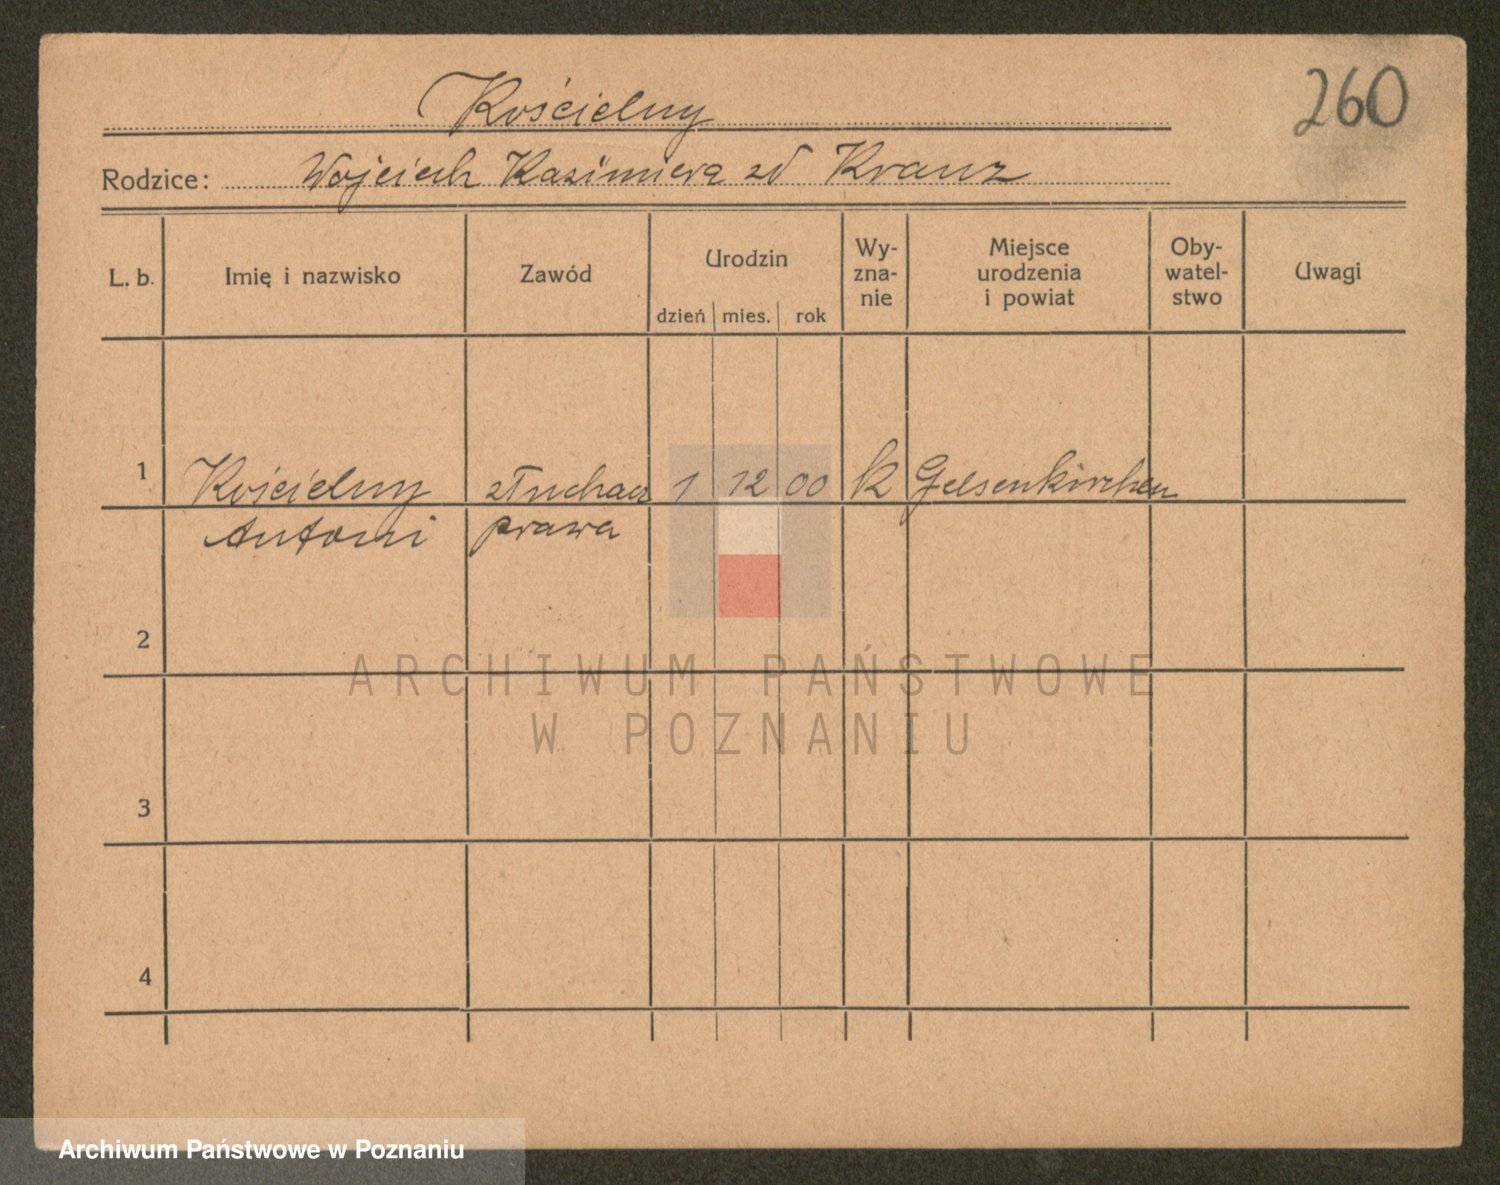 260
Kościelny
Rodzice: Wojciech Kazimiera zd Kranz
L. b. Imię i nazwisko Zawód Urodzin dzień mies. rok Wy-zna-nie Miejsce urodzenia i powiat Oby-watel-stwo Uwagi
1 Kościelny słuchacz 1 12 00 k Gelsenkirchen
Antoni prawa
2
ARCHIWUM PAŃSTWOWE
W POZNANIU
3
4
Archiwum Państwowe w Poznaniu